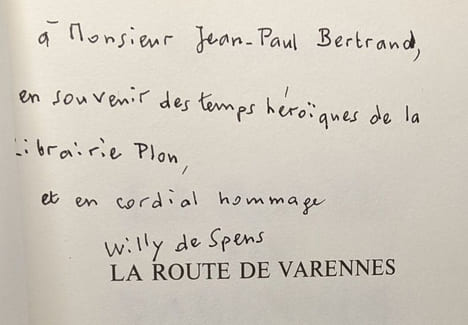 à Monsieur Jean-Paul Bertrand,
en souvenir des temps héroïques de la
Librairie Plon,
et en cordial hommage
Willy de Spens
LA ROUTE DE VARENNES